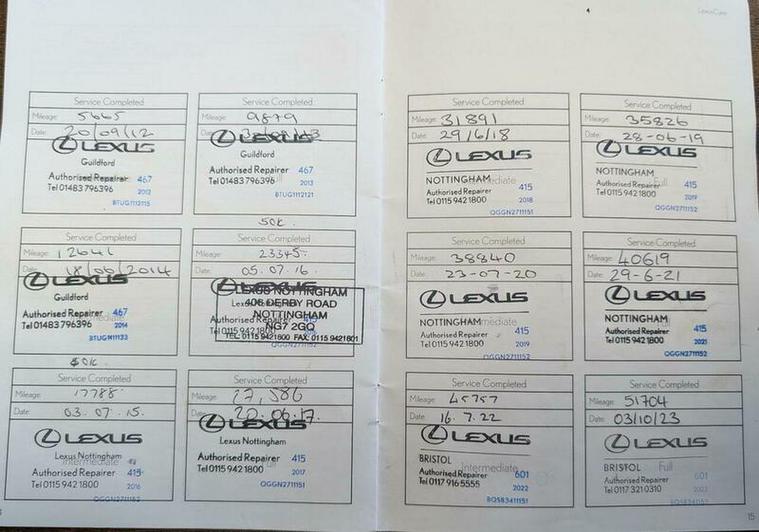 LexusCare
Service Completed
Mileage: 5665
Date: 20/09/12
LEXUS
Guildford
Authorised Repairer 467
Tel 01483 796396 2012
BTUG1112115
Service Completed
Mileage: 9879
Date:
LEXUS
Guildford
Authorised Repairer 467
Tel 01483 796396 2013
BTUG1112121
Service Completed
Mileage: 12641
Date: 18/06/2014
LEXUS
Guildford
Authorised Repairer 467
Tel 01483 796396 2014
BTUG1111133
50K.
Service Completed
Mileage: 23345.
Date: 05.07.16.
LEXUS
LEXUS NOTTINGHAM
406 DERBY ROAD
NOTTINGHAM
NG7 2GQ
TEL: 0115 9421800 FAX: 0115 9421801
Service Completed
Mileage: 17788.
Date: 03.07.15.
LEXUS
Lexus Nottingham
Intermediate
Authorised Repairer 415
Tel 0115 942 1800 2016
Service Completed
Mileage: 27,586
Date: 20.06.17.
LEXUS
Lexus Nottingham
Authorised Repairer 415
Tel 0115 942 1800 2017
QGGN2711151
Service Completed
Mileage: 31891
Date: 29/6/18
LEXUS
NOTTINGHAM
Authorised Repairer 415
Tel 0115 942 1800 2018
QGGN2711151
Service Completed
Mileage: 35826
Date: 28-06-19
LEXUS
NOTTINGHAM
Full
Authorised Repairer 415
Tel 0115 942 1800 2019
QGGN2711152
Service Completed
Mileage: 38840
Date: 23-07-20
LEXUS
NOTTINGHAM
Authorised Repairer 415
Tel 0115 942 1800 2019
QGGN2711152
Service Completed
Mileage: 40619
Date: 29-6-21
LEXUS
NOTTINGHAM
Authorised Repairer 415
Tel 0115 942 1800 2021
QGGN2711152
Service Completed
Mileage: 45757
Date: 16.7.22
LEXUS
BRISTOL
Intermediate
Authorised Repairer 601
Tel 0117 916 5555 2022
BQSB3411151
Service Completed
Mileage: 51704
Date: 03/10/23
LEXUS
BRISTOL Full
Authorised Repairer 601
Tel 0117 321 0310 2023
15